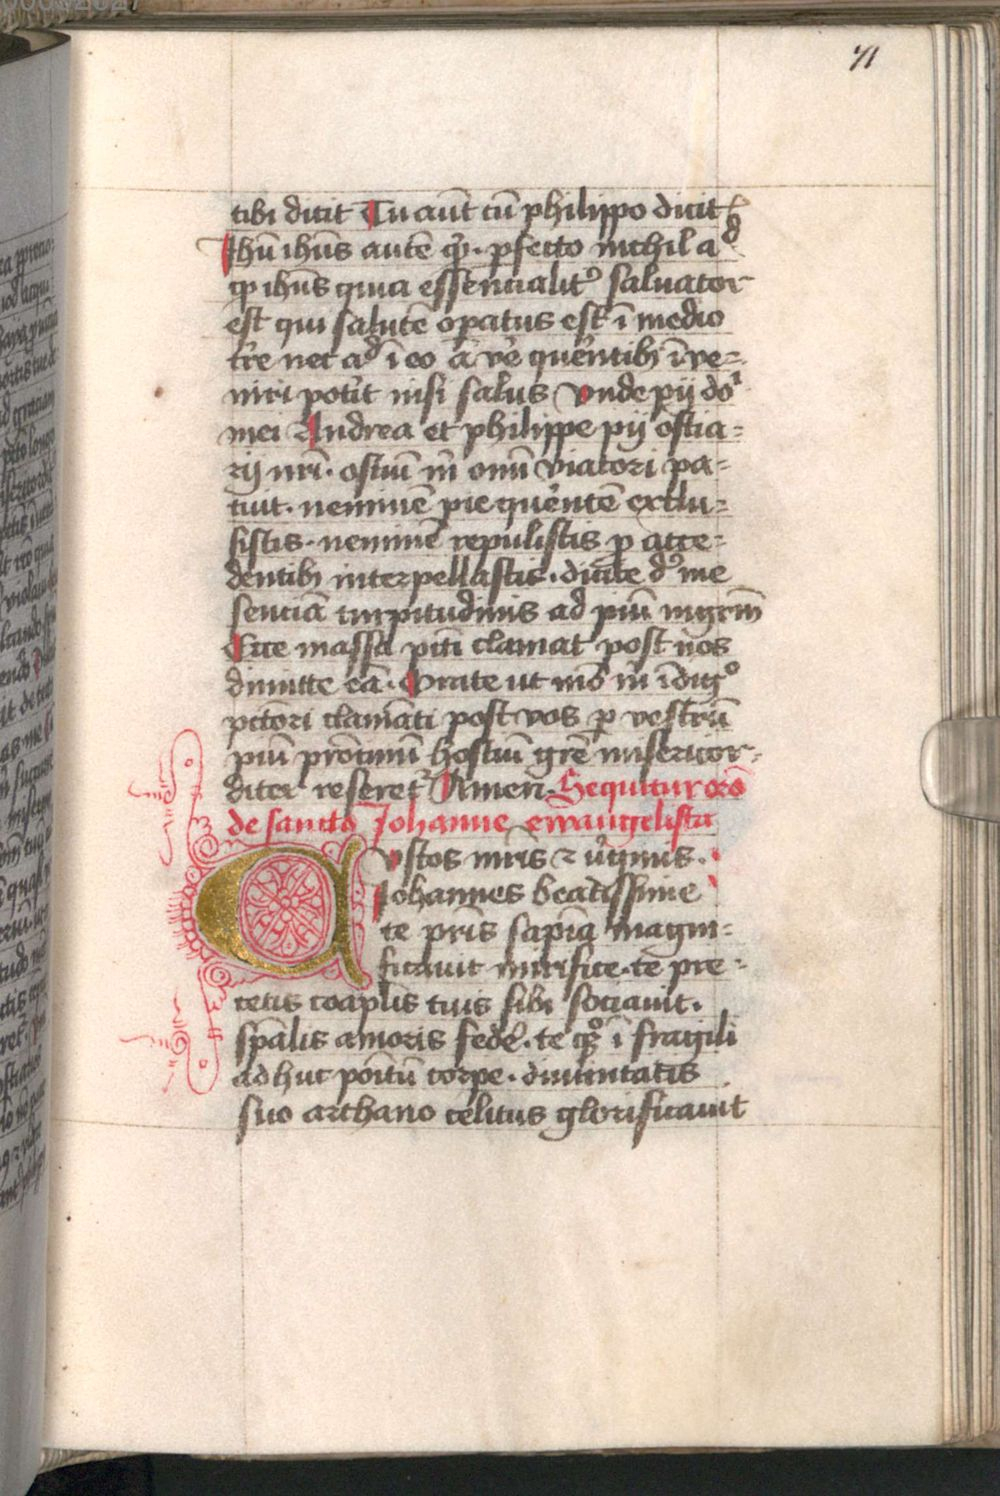 71
tibi dicit Tu aut̄ cū philippo dicit
Jhū ihūs autē qr̄. ꝓfecto nichil ad
qꝫ ihūs quia essencialitꝰ saluator
est qui salutē opatus est ī medio
tr̄e nec ad ī eo a v̄e querentibꝫ īve=
niri potīt nisi salus vnde pij do
mei Andrea et philippe pij ostia=
rij nr̄i. ostiū m̄ omī viatori pa=
tuit. neminē pie querentē exclu=
sistis. neminē repulistis ꝓ acce=
dentibꝫ interpellastis. dicite me
senciā turpitudinis ad piū
Ecce massa pcc̄i clamat post nos
dimitte eā. Orate ut m̄ īdigº
pctōri clamāti post vos ꝑ vestrū
piū hostiū gr̄e misericor=
diter reseret̄ Amen. Sequitur oro
de sancto Johanne ewangelista
Custos mr̄is ⁊ v̄ginis.
Johannes beatissime
te pr̄is sapīa magni=
ficauit mirifice. te pre=
cetis coaplis tuis sibi sociauit.
sp̄alis amoris fede. te ī fragili
ad huc poītū corpe. diuinitatis
suo archano celitus glorificauit